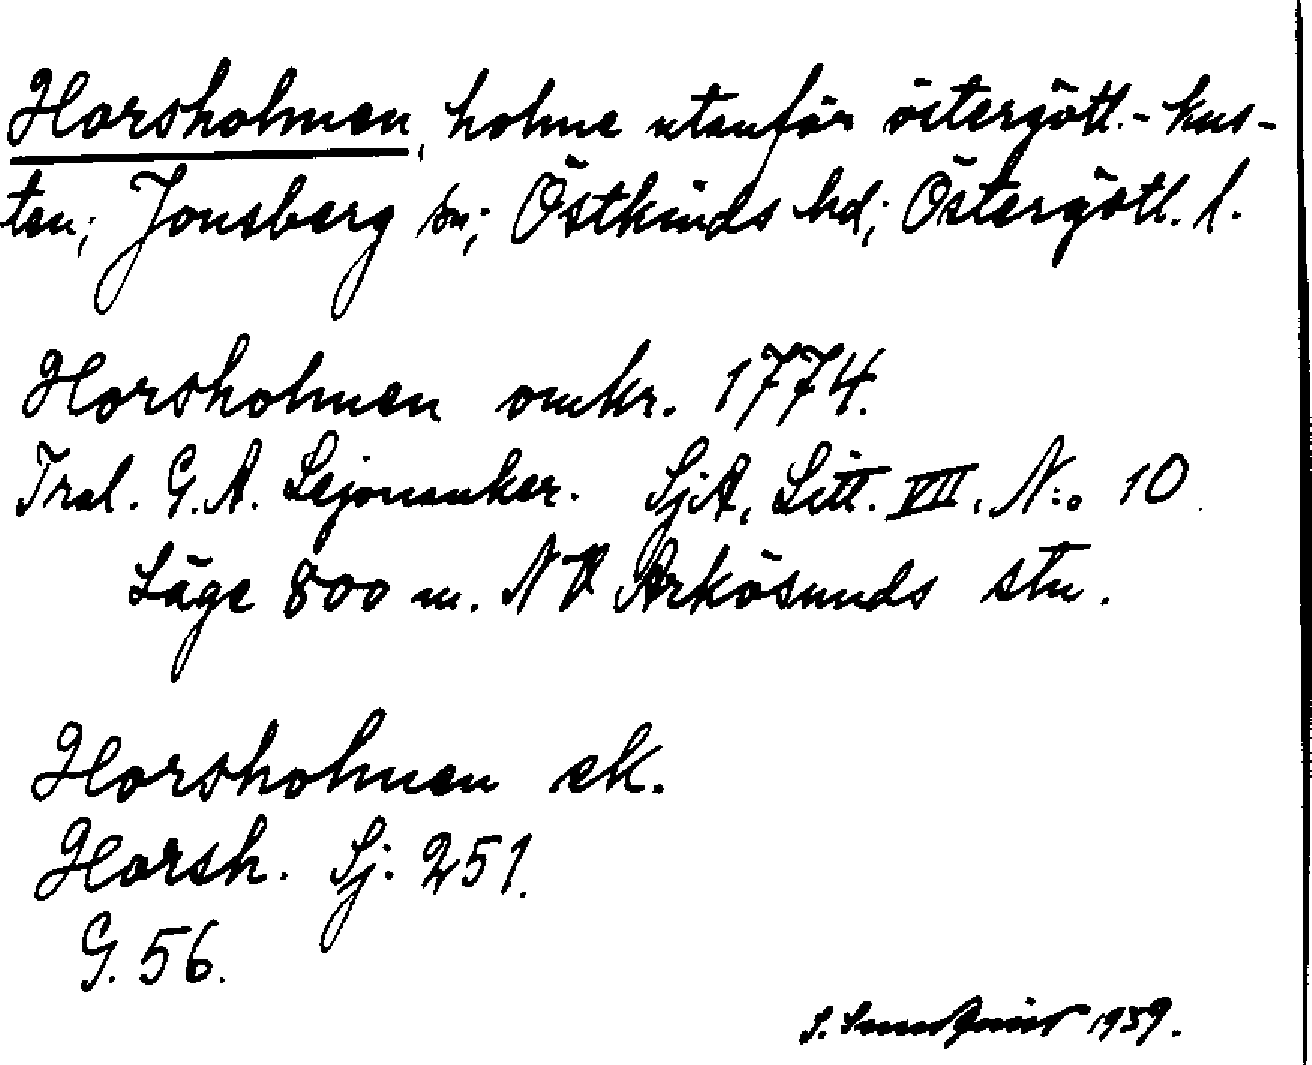 Horsholmen, holme utanför östergötl.-kus-
ten; Jonsberg sn; Östkinds hd; Östergötl. l.
Horsholmen omkr. 1774.
Tral. G.A. Lejonanker. SjA, Litt. VII. N:o 10.
Läge 800 m. NV Arkösunds stn.
Horsholmen ek.
Horsh. Sj. 251.
G. 56.
S. 1939.